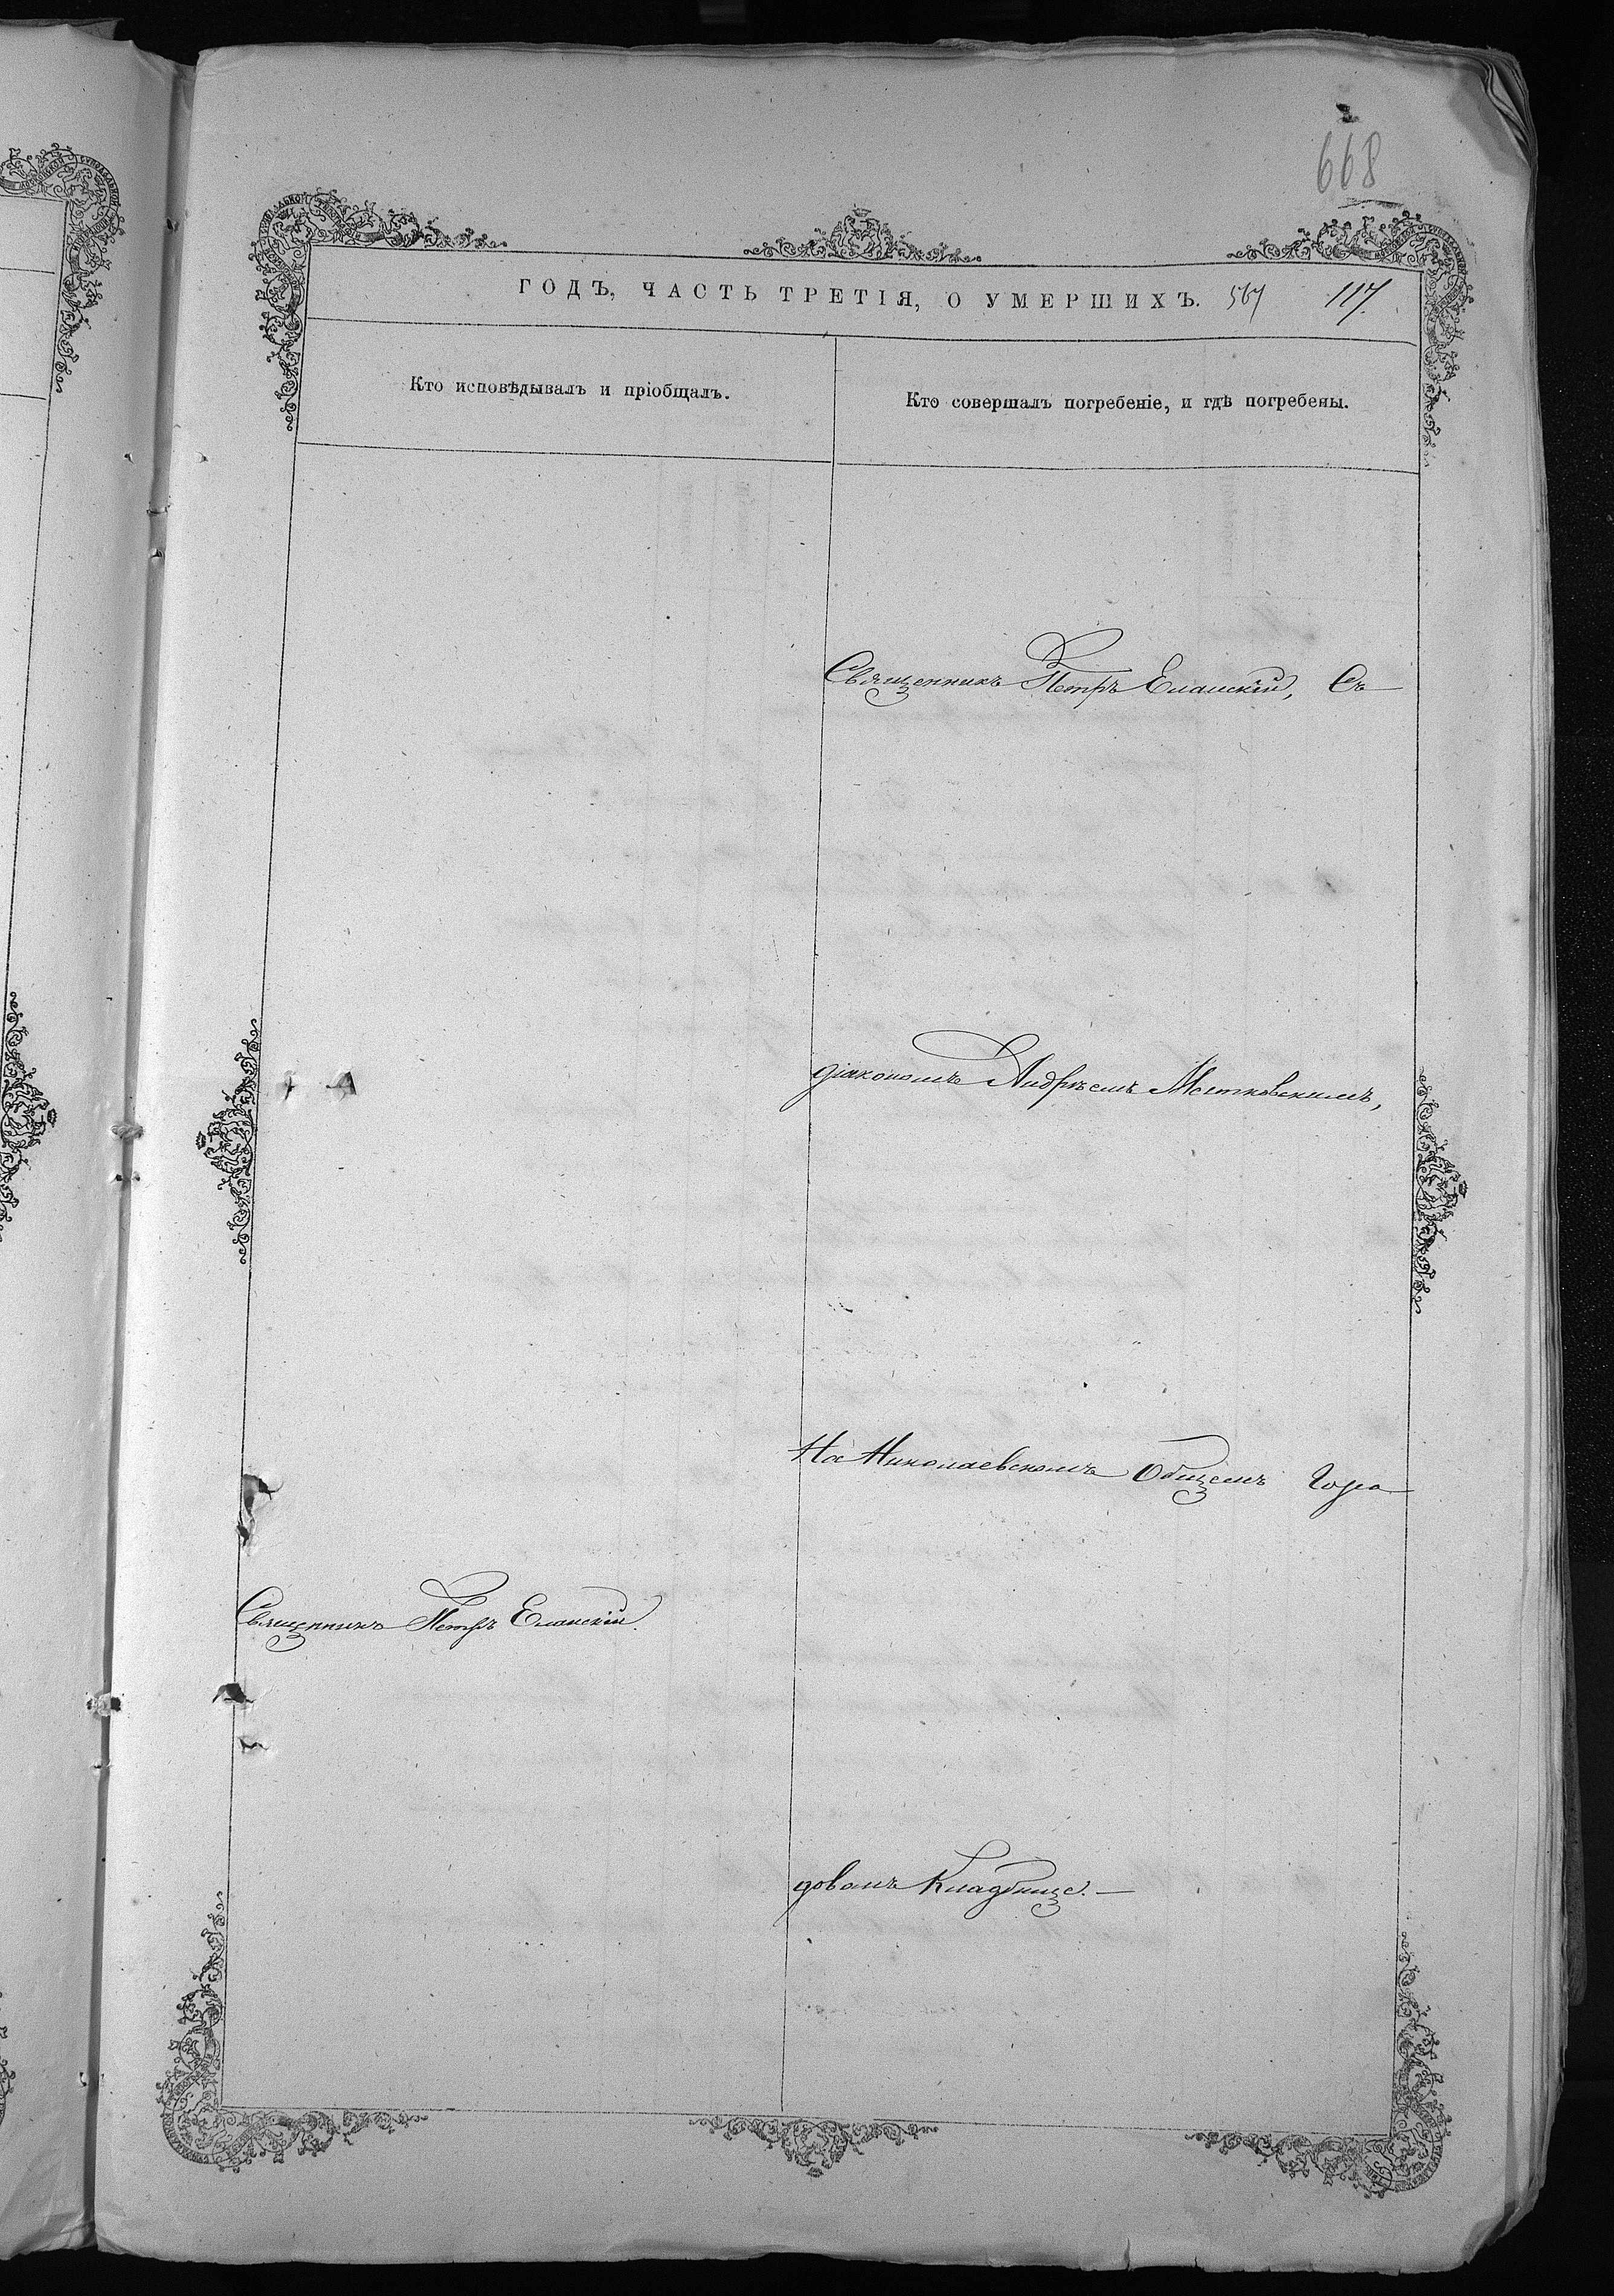 668
ГОДЪ, ЧАСТЬ ТРЕТІЯ, О УМЕРШИХЪ. 567 117.
Кто исповѣдывалъ и пріобщалъ.
Кто совершалъ погребеніе, и гдѣ погребены.
Священникъ Петръ Еланскій, Съ
діакономъ Андреемъ
На Николаевскомъ Общемъ Горо
Священникъ Петръ Еланскій.
довомъ Кладбище.—